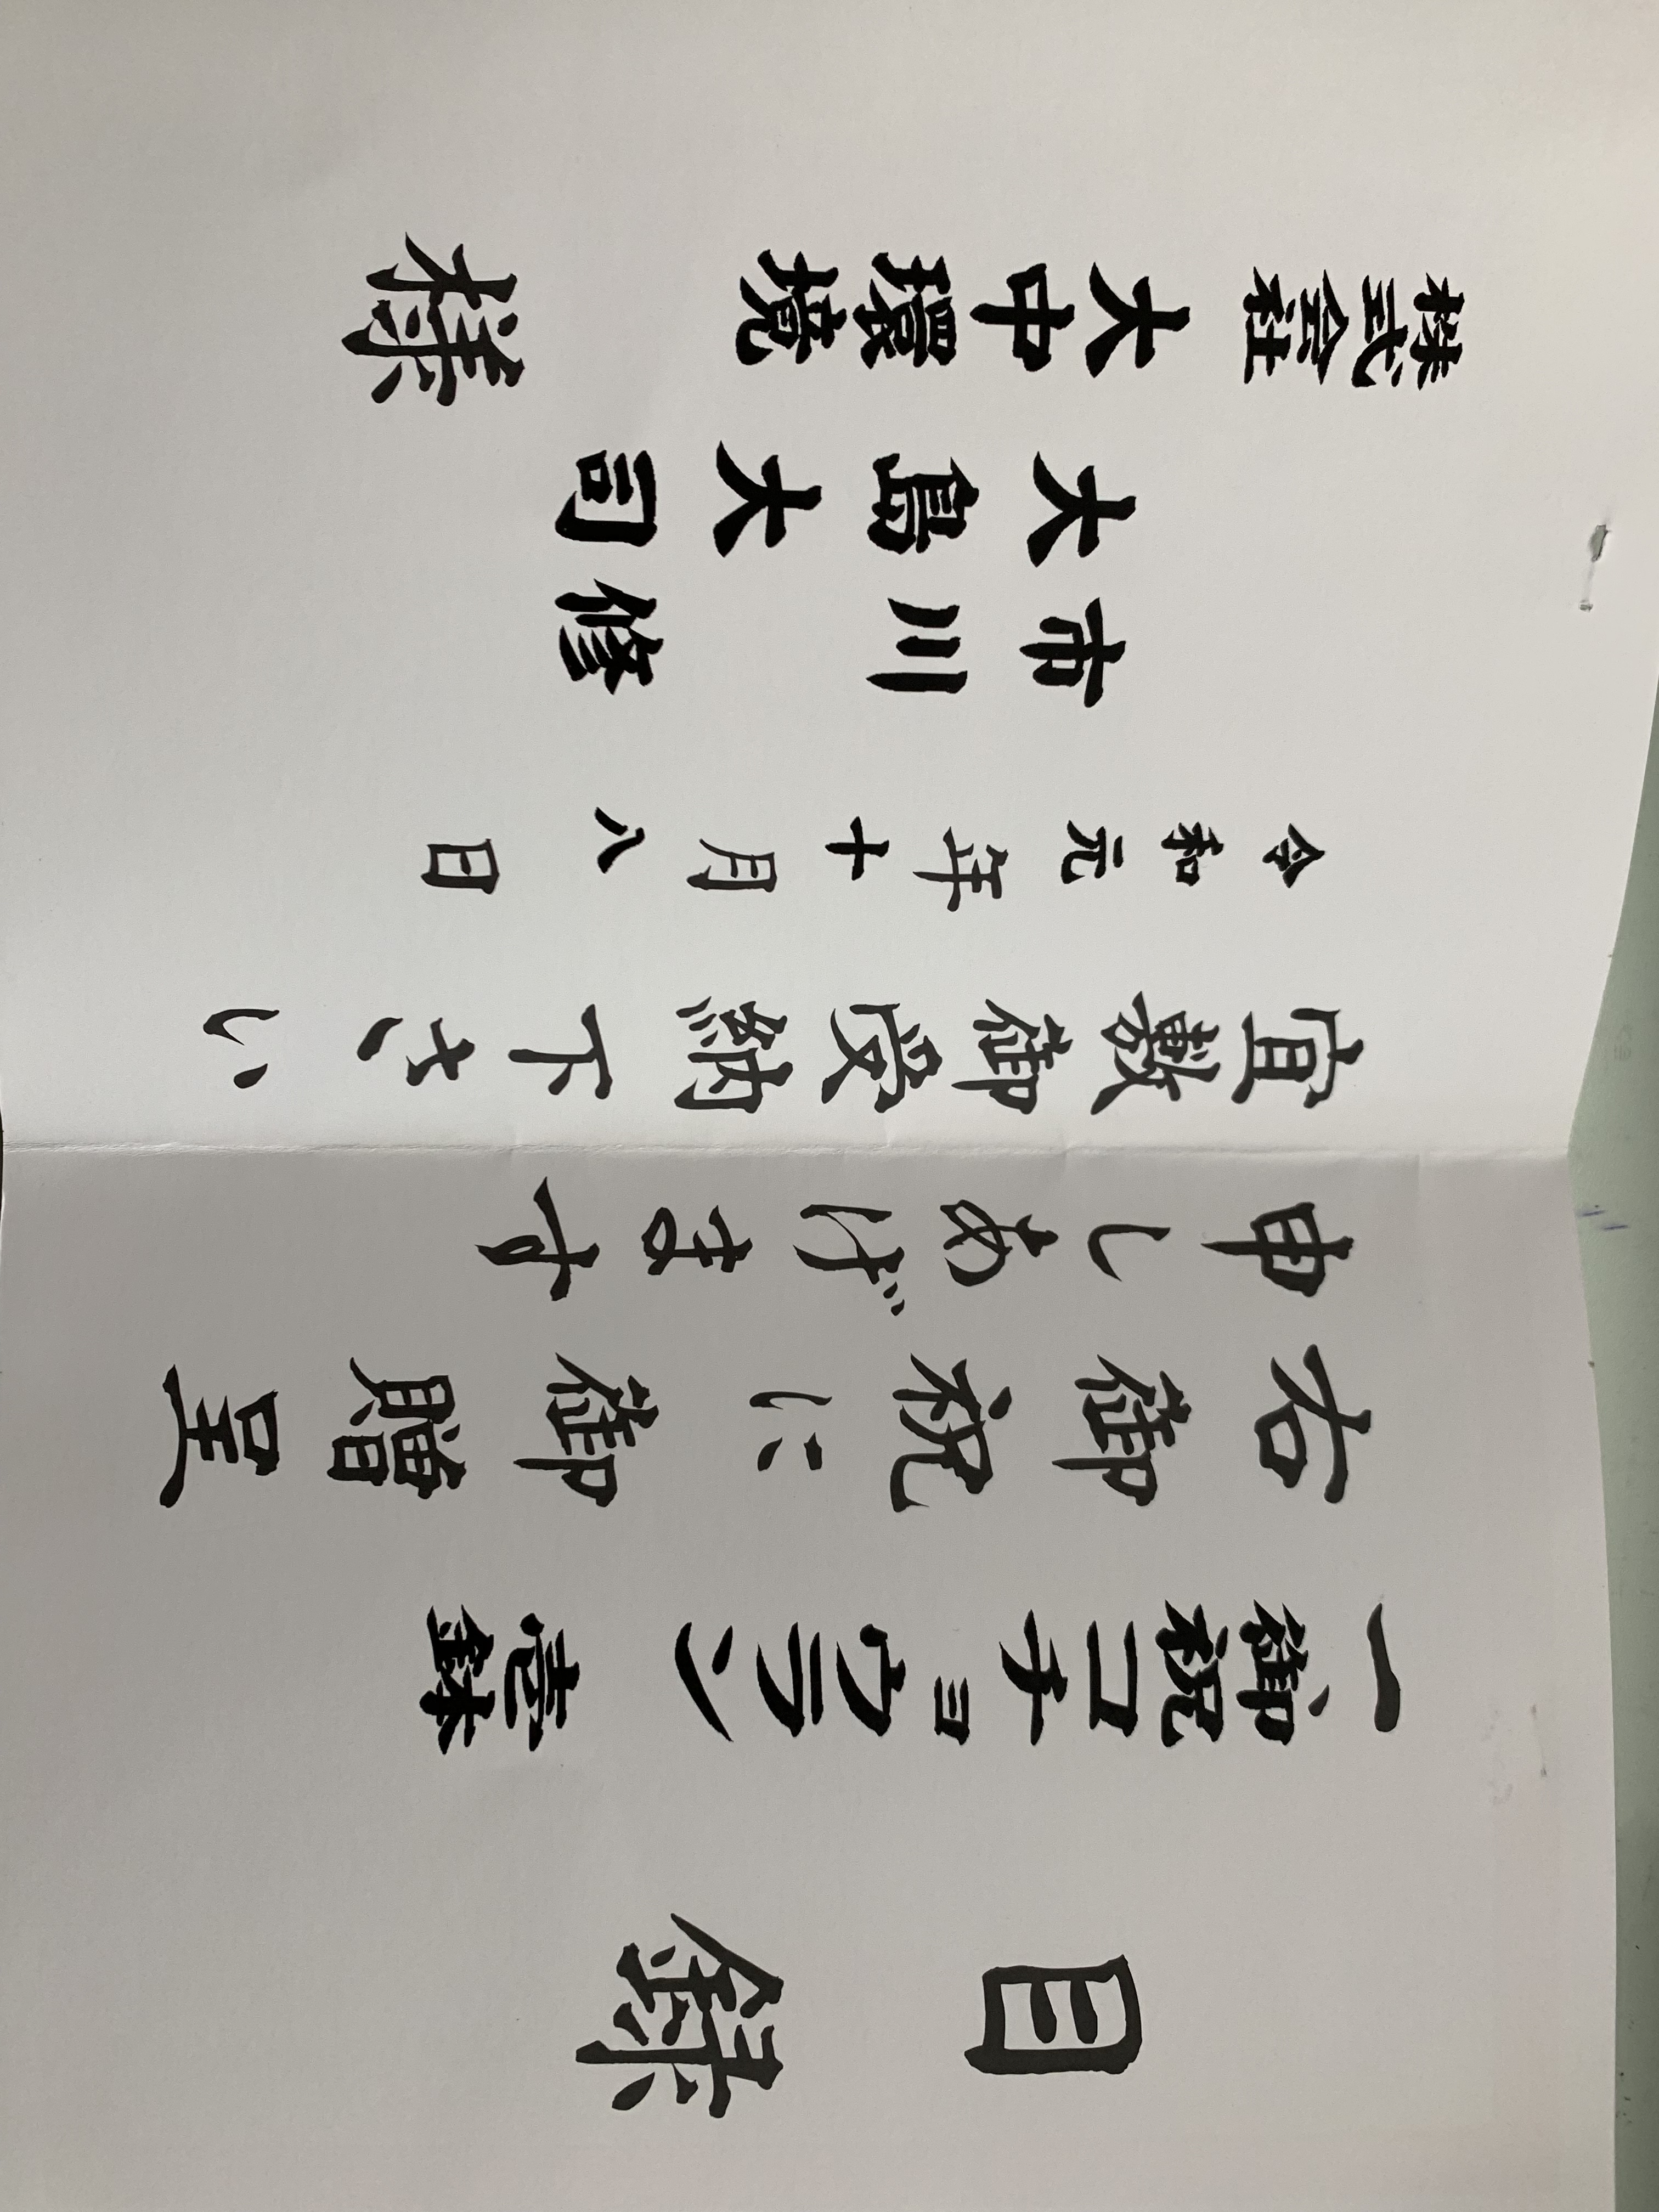 目録
一御祝コチョウラン 壱鉢
右御祝に御贈呈
申しあげます
宜敷御受納下さい
令和元年十月八日
市川 修
大島大司
株式会社 大中環境 様